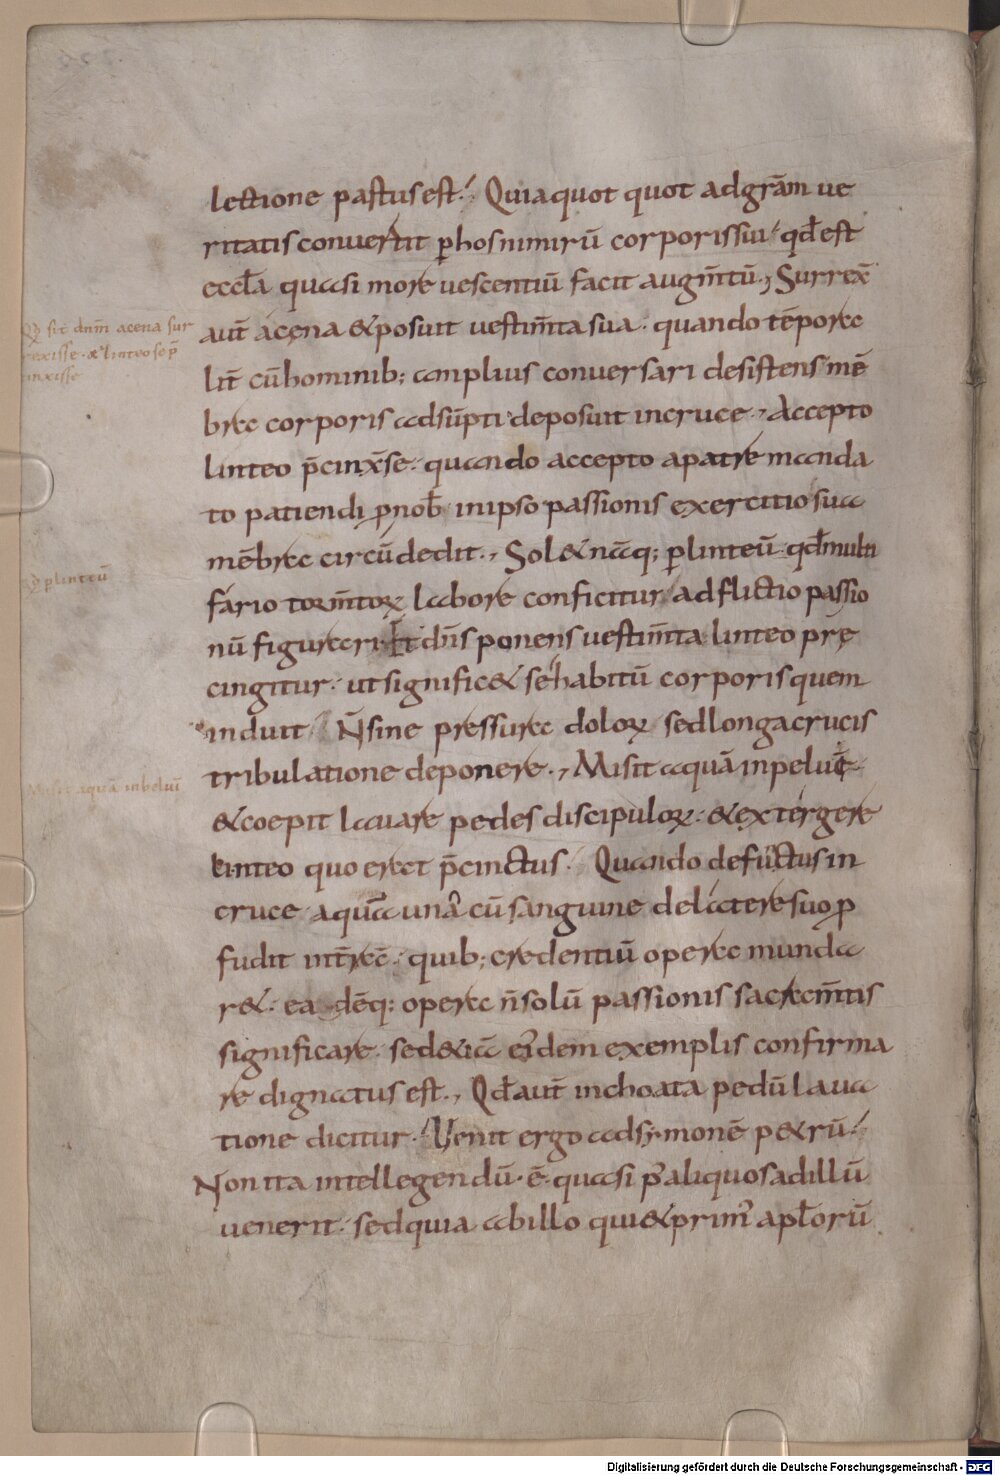 lectione pastus est. Quia quot quot ad grām ue
ritatis conuertit ꝑ hos nimirū corporis sui qđ est
eccła quasi more uescentiū facit augm̄tū. Surrex̄
Qđ sit dnm̄ a cena sur
rexisse & linteo se p̄
cinxisse
aut̄ a cena & posuit uestim̄ta sua. quando tēpora
lit̄ cū hominib; amplius conuersari desistens mē
bra corporis adsūpti deposuit in cruce. Accepto
linteo p̄cinx̄ se. quando accepto a patre manda
to patiendi ꝓ nob̄ in ipso passionis exercitio sua
mēbra circūdedit. Sol& nāq; ꝑ linteū qđ multi
Qđ ꝑ linteū
fario torm̄toꝝ labore conficitur adflictio passio
nū figurari. Et dn̄s ponens uestim̄ta linteo prę
cingitur. ut signific& se habitū corporis quem
induit N̄ sine pressura doloꝝ sed longa crucis
tribulatione deponere. Misit aquā in peluī
Misit aquā in beluī
& coepit lauare pedes discipuloꝝ. & extergere
linteo quo erat p̄cinctus. Quando defūctus in
cruce aquā una cū sanguine de latere suo ꝓ
fudit in t̄rā. quib; credentiū opera munda
r&. eadēq; opera n̄ solū passionis sacram̄tis
significare. sed &iā eiusdem exemplis confirma
re dignatus est. Qđ aut̄ inchoata pedū laua
tione dicitur. Uenit ergo ad symonē p&rū.
Non ita intellegendū ē quasi p' aliquos ad illū
uenerit. sed quia ab illo qui & prim' apłorū
Digitalisierung gefördert durch die Deutsche Forschungsgemeinschaft - DFG